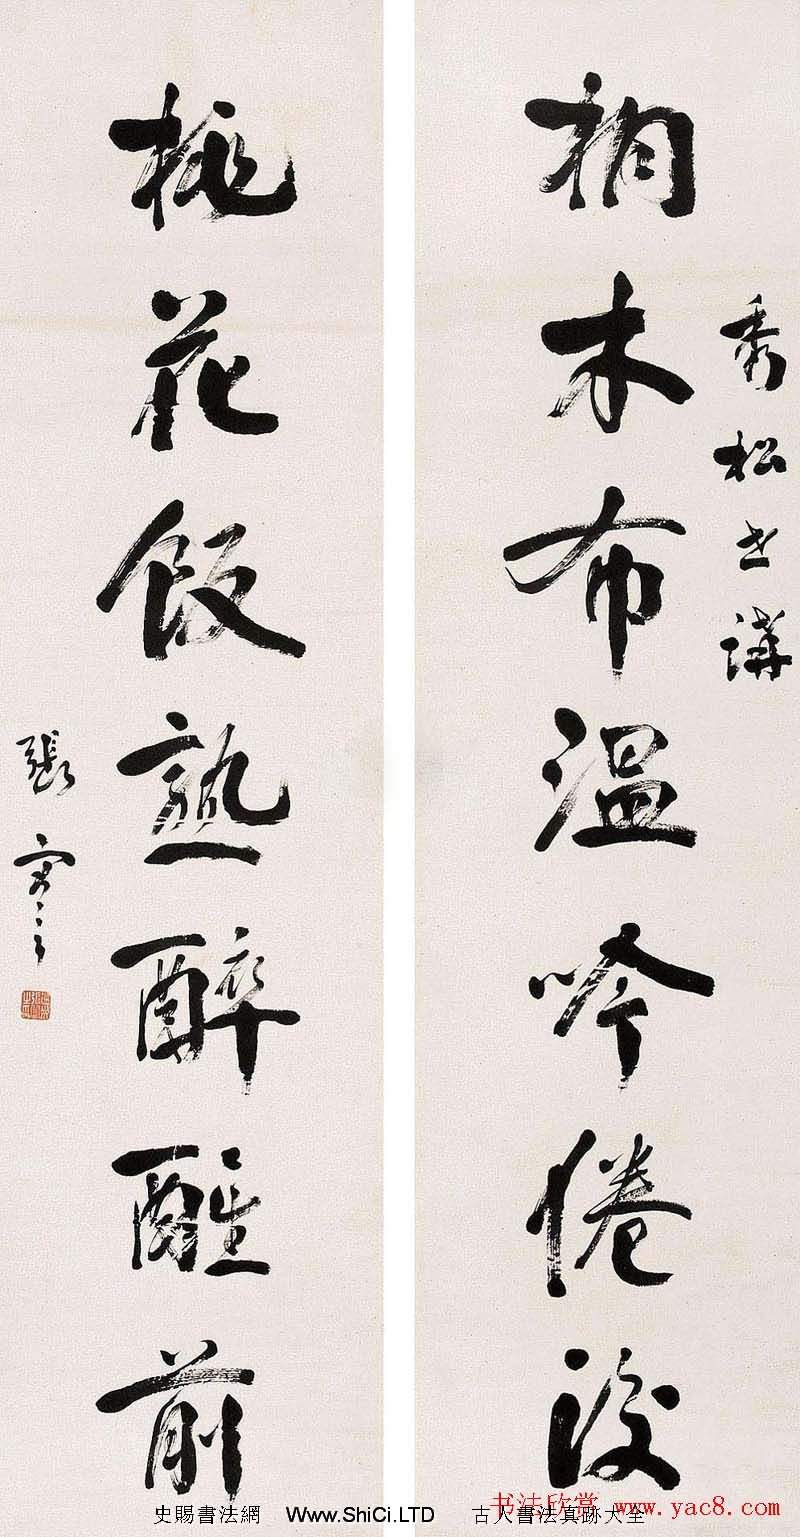 秀松世講
桐木布温吟倦後
桃花飯熟醉醒前
張謇
书法欣赏 www.yac8.com
史賜書法網 Www.ShiCi.LTD 古人書法真跡大全